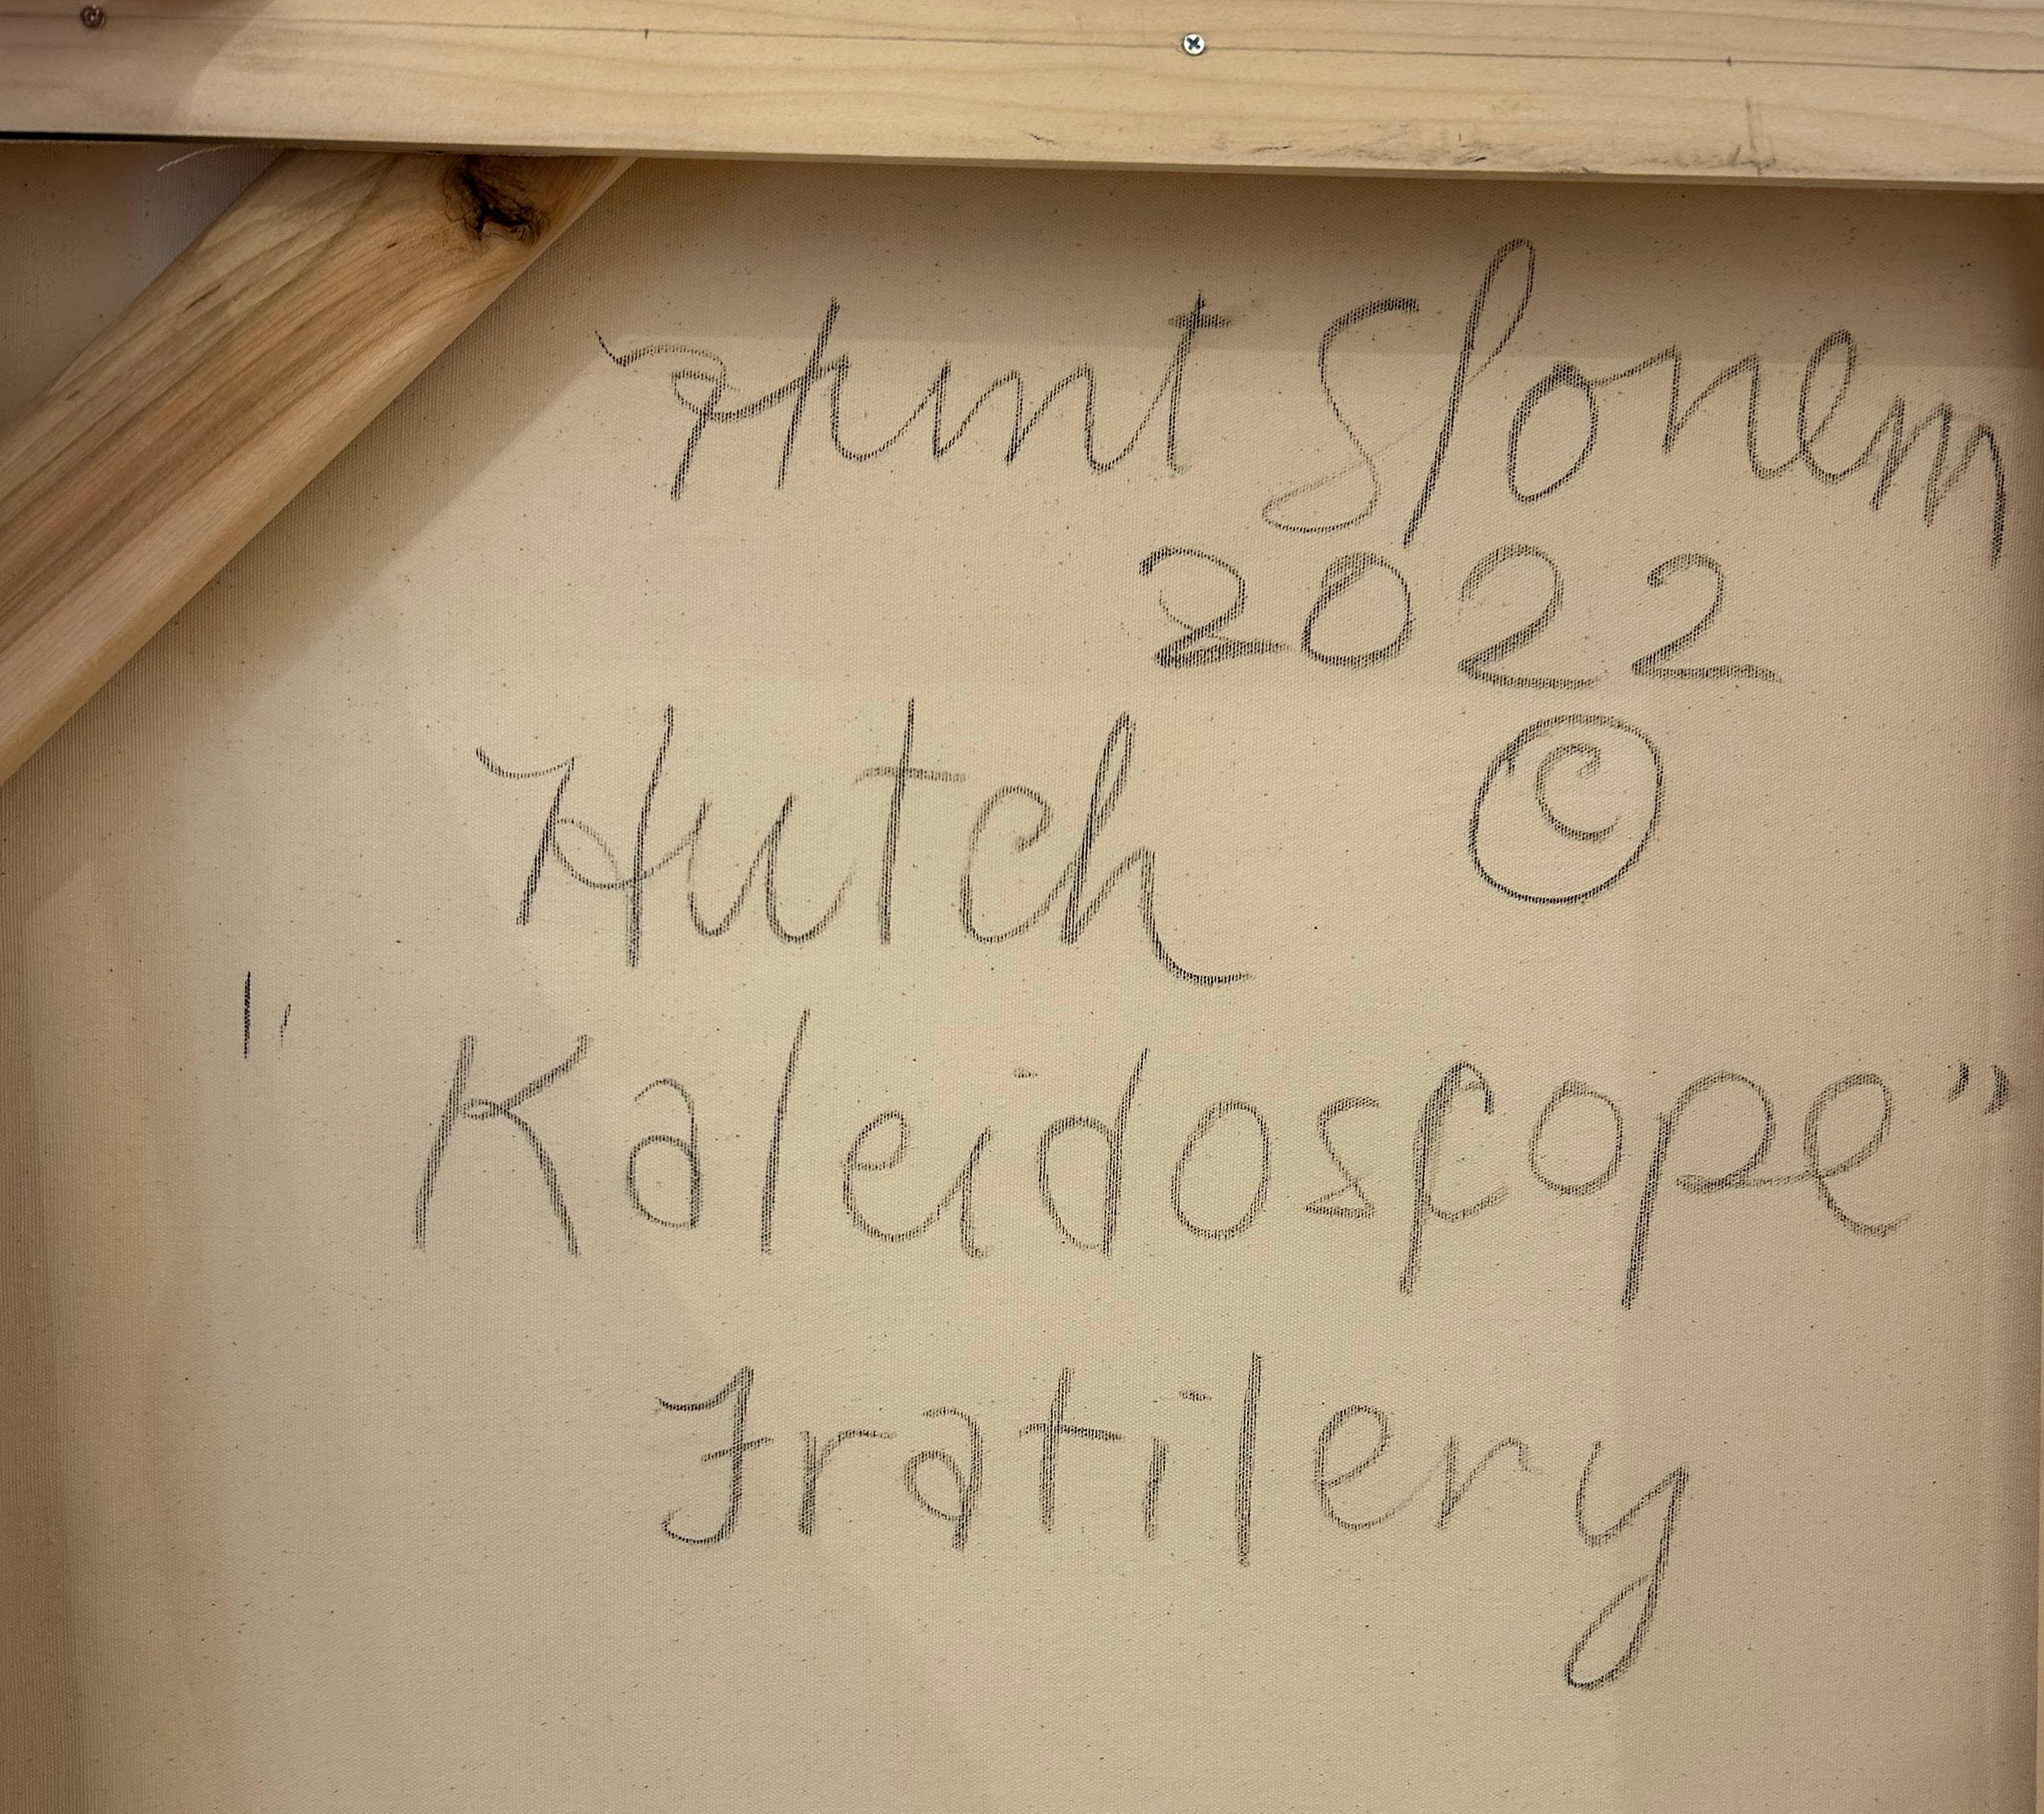 Hunt Slonem
2022
Hutch ©
"Kaleidoscope"
Fratilery